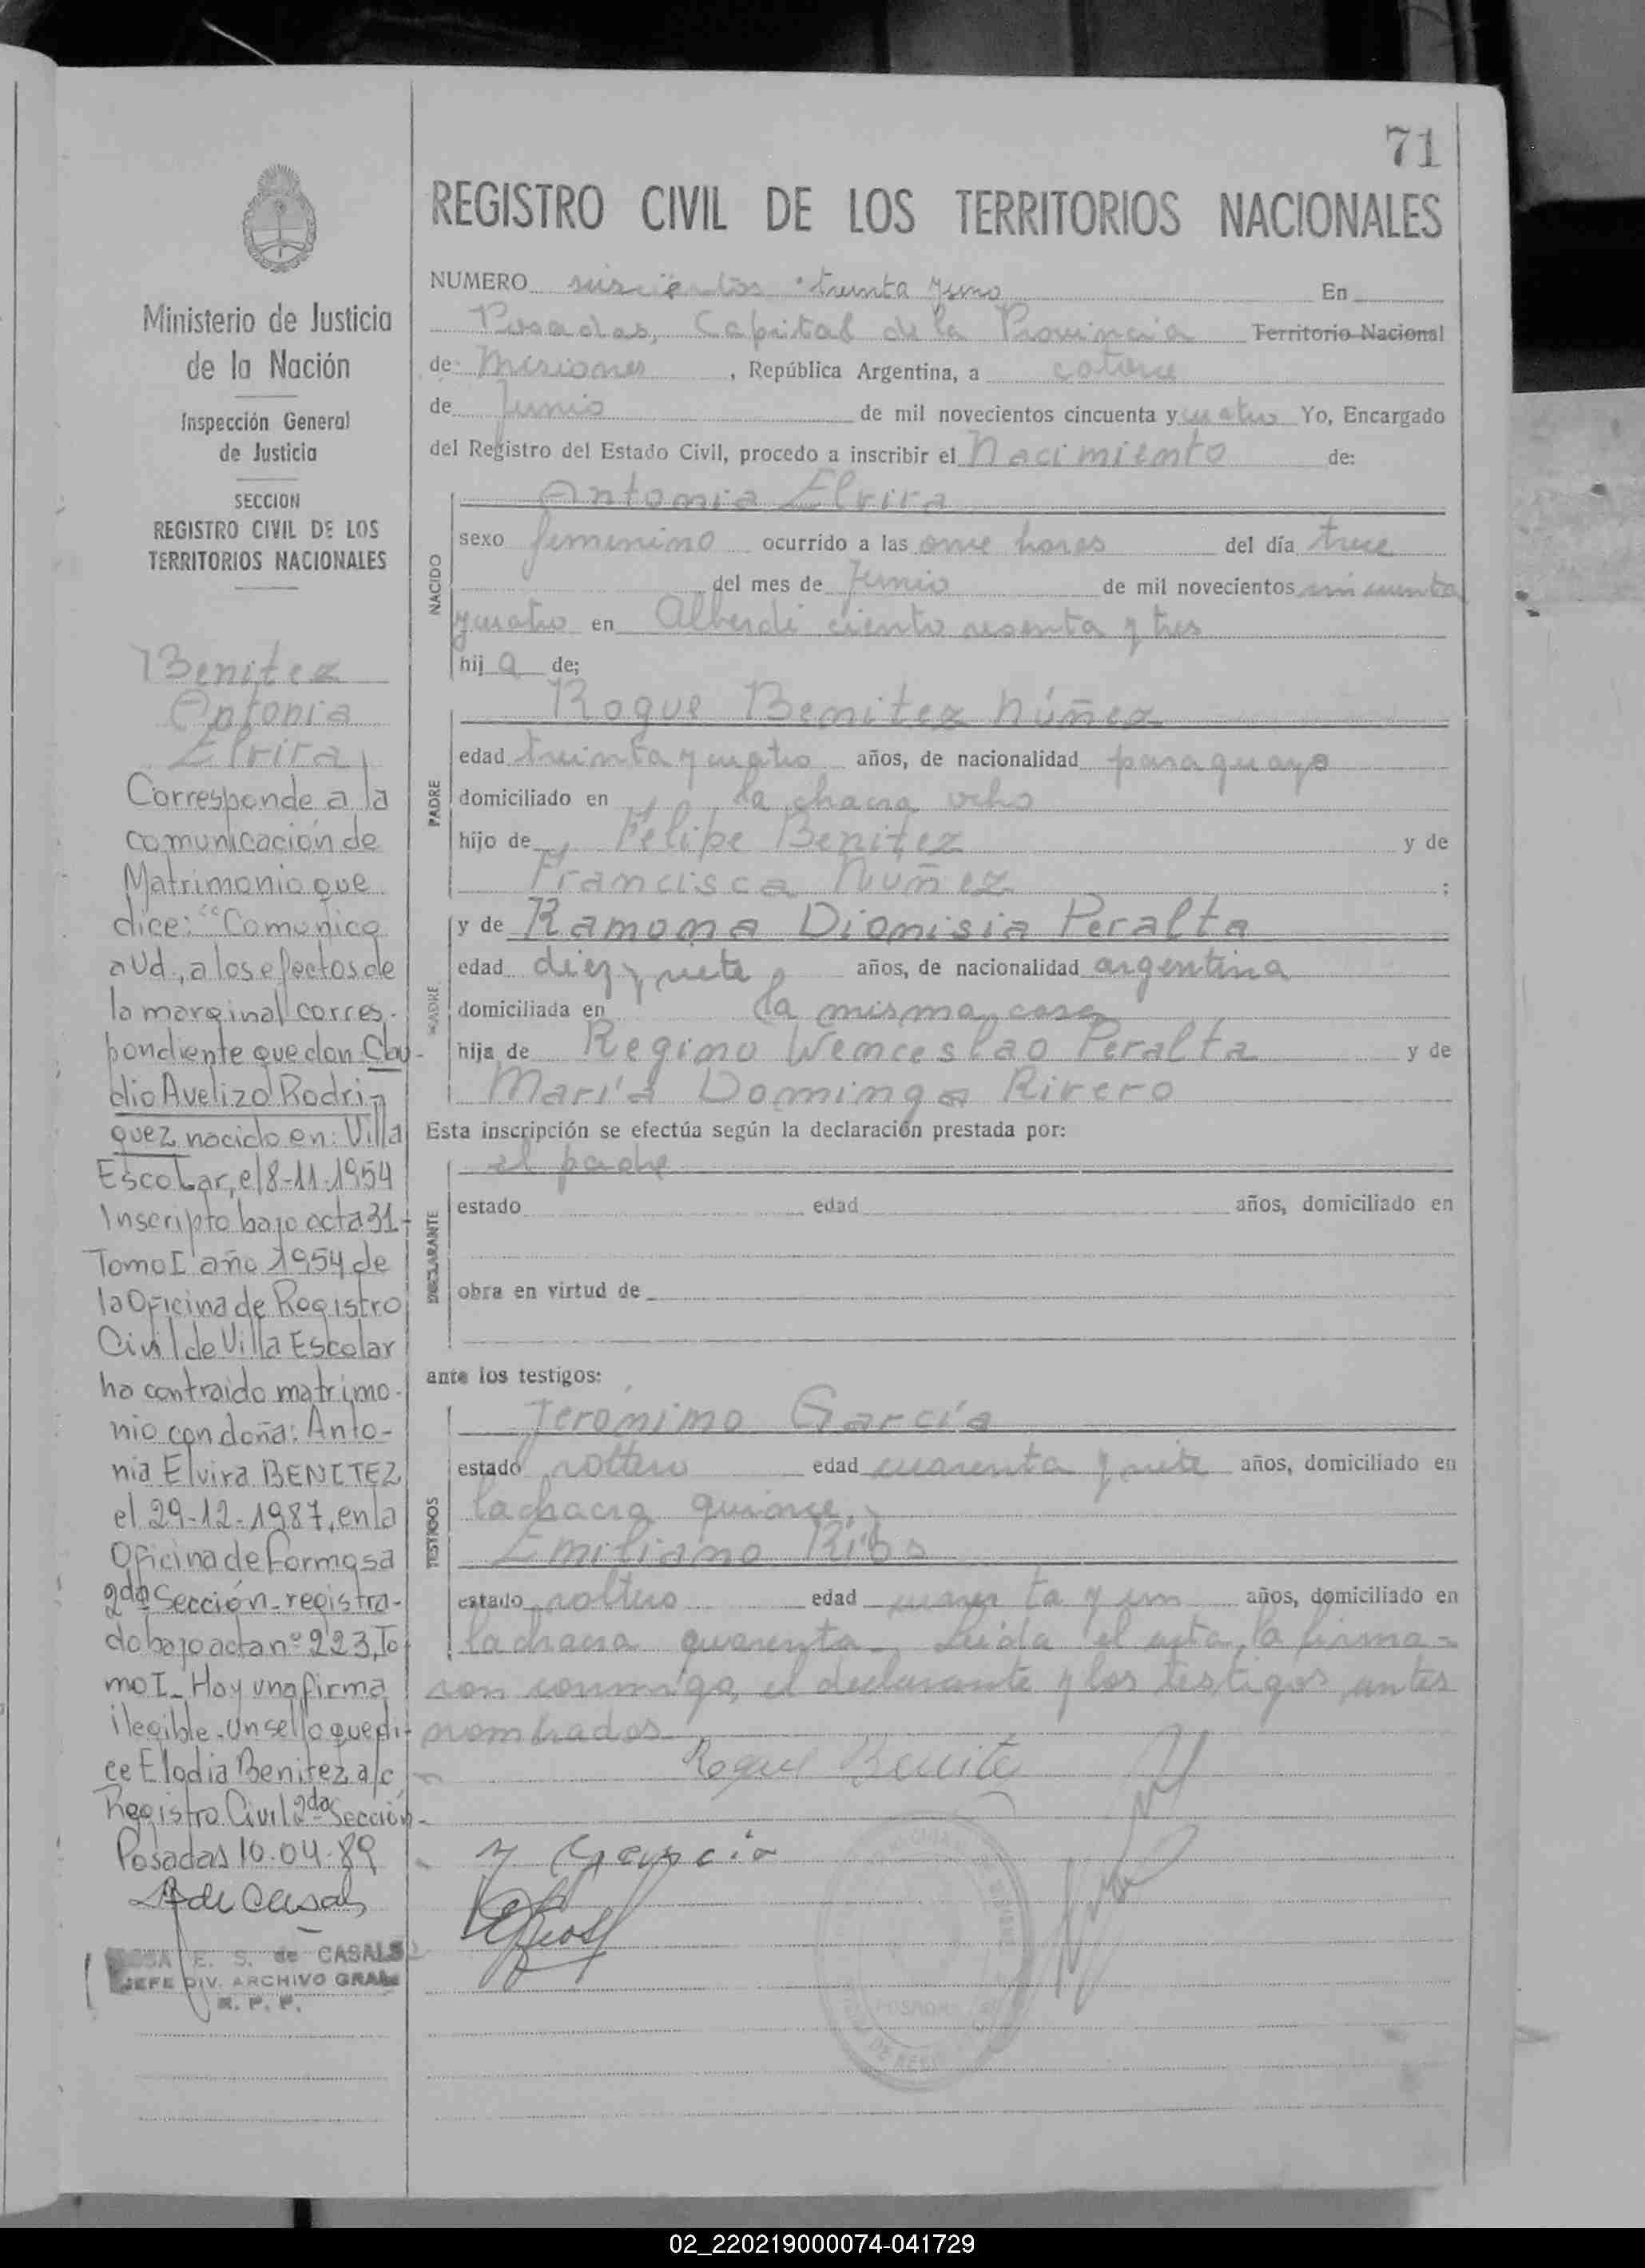 71
REGISTRO CIVIL DE LOS TERRITORIOS NACIONALES
Ministerio de Justicia
de la Nación
Inspección General
de Justicia
SECCION
REGISTRO CIVIL DE LOS
TERRITORIOS NACIONALES
Benitez
Antonia
Elvira
Corresponde a la
comunicación de
Matrimonio que
dice: "Comunico
a Ud., a los efectos de
la marginal corres-
pondiente que don: Clau-
dio Avelizo Rodri
guez nacido en: Villa
Escolar, el 8-11-1954
Inscripto bajo acta 31-
Tomo I año 1954 de
la Oficina de Registro
Civil de Villa Escolar
ha contraido matrimo-
nio con doña: Anto-
nia Elvira BENITEZ
el 29-12-1987, en la
Oficina de Formosa
2da Sección registra-
do bajo acta nº 223, To
mo I_ Hay una firma
ilegible. Un sello que di-
ce Elodia Benitez a/c
Registro Civil 2da Sección-
Posadas 10.04.89
de Casals
E. S. de CASALS
JEFE DIV. ARCHIVO GRAL
R. P. P.
NUMERO seiscientos treinta y uno En
Posadas, Capital de la Provincia Territorio Nacional
de Misiones, República Argentina, a catorce
de Junio de mil novecientos cincuenta y cuatro Yo, Encargado
del Registro del Estado Civil, procedo a inscribir el Nacimiento de:
NACIDO
Antonia Elvira
sexo femenino ocurrido a las once horas del día trece
del mes de Junio de mil novecientos cincuenta
y cuatro en Alberdi ciento sesenta y tres
hij a de;
PADRE
Roque Benitez Núñez
edad treinta y cuatro años, de nacionalidad paraguayo
domiciliado en la chacra ocho
hijo de Felipe Benitez y de
Francisca Núñez ;
MADRE
y de Ramona Dionisia Peralta
edad diez y siete años, de nacionalidad argentina
domiciliada en la misma casa
hija de Regino Wenceslao Peralta y de
María Dominga Rivero
Esta inscripción se efectúa según la declaración prestada por:
DECLARANTE
el padre
estado edad años, domiciliado en
obra en virtud de
ante los testigos:
TESTIGOS
Jerónimo García
estado soltero edad cuarenta y siete años, domiciliado en
la chacra quince,
Emiliano Ríos
estado soltero edad cuarenta y un años, domiciliado en
la chacra cuarenta_ Leida el acta, la firma-
ron conmigo, el declarante y los testigos antes
nombrados
Roque Benite
J Garcia
POSADAS
02_220219000074-041729